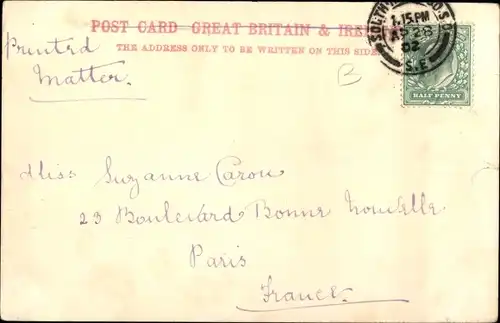 POST CARD GREAT BRITAIN & IRELAND
THE ADDRESS ONLY TO BE WRITTEN ON THIS SIDE
1.15.PM
AP 28
02
S.E
HALF PENNY
Printed
Matter.
Miss Suzanne Carou
23 Boulevard Bonne Nouvelle
Paris
France.